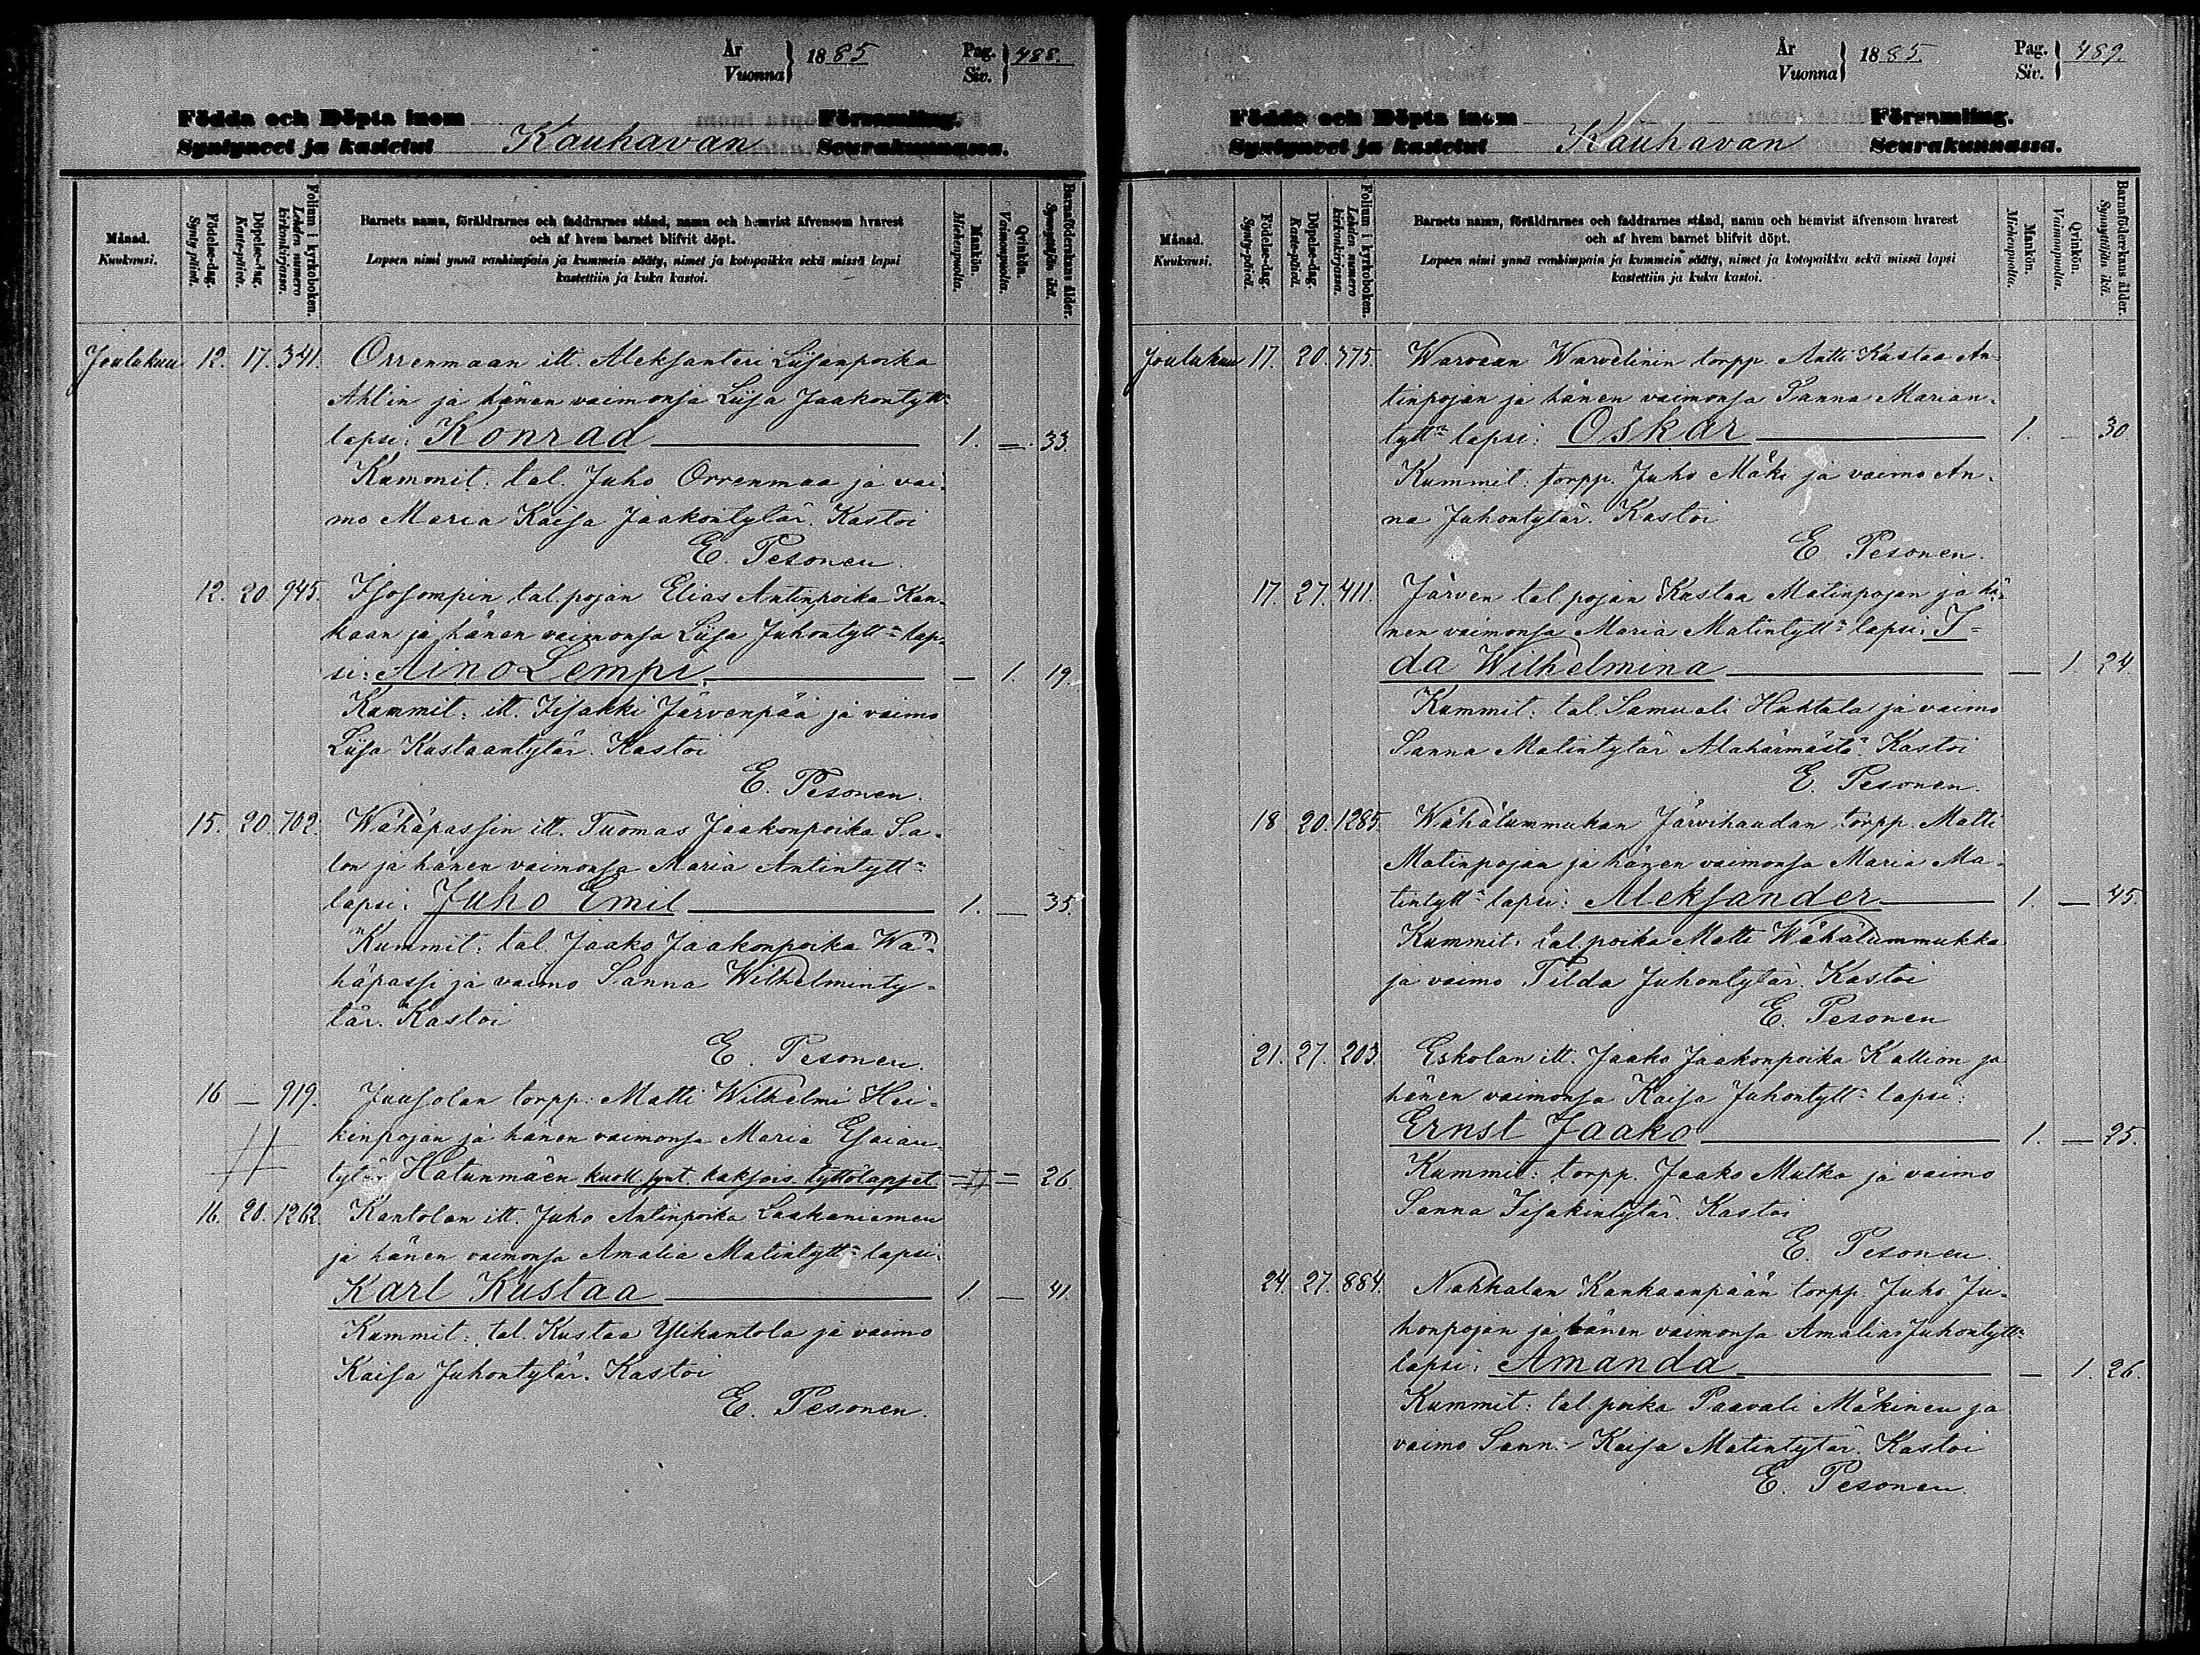 År
Vuonna 1885 Pag. 488.
Siv.
Födda och Döpta inom Församling.
Syntyneet ja kastetut Kauhavan Seurakunnassa.
Månad.
Kuukausi.
Födelse-dag.
Synty-päivä.
Döpelse-dag.
Kaste-päivä.
Folium i kyrkoboken.
Lehden numero
kirkonkirjassa.
Barnets namn, föräldrarnes och faddrarnes stånd, namn och hemvist äfvensom hvarest
och af hvem barnet blifvit döpt.
Lapsen nimi ynnä vanhimpain ja kummein sääty, nimet ja kotopaikka sekä missä lapsi
kastettiin ja kuka kastoi.
Mankön.
Miehenpuolia.
Qvinkön.
Vaimonpuolia.
Barnaföderskans ålder.
Synnyttäjän ikä.
Joulukuu 12. 17. 341. Orrenmaan itt. Aleksanteri Liisanpoika
Ahlin ja hänen vaimonsa Liisa Jaakontytt=
lapsi: Konrad 1. — 33.
Kummit: tal. Juho Orrenmaa ja vai-
mo Maria Kaisa Jaakontytär. Kastoi
E. Pesonen.
12. 20. 945. Isosompin tal. pojan Elias Antinpoika Kan-
kaan ja hänen vaimonsa Liisa Juhontytt= lap-
si: Aino Lempi. — 1. 19.
Kummit: itt. Iisakki Järvenpää ja vaimo
Liisa Kustaantytär. Kastoi
E. Pesonen.
15. 20. 702. Wähäpassin itt. Tuomas Jaakonpoika Sa-
lon ja hänen vaimonsa Maria Antintytt=
lapsi: Juho Emil 1. — 35.
Kummit: tal. Jaako Jaakonpoika Wä-
häpassi ja vaimo Sanna Wilhelminty-
tär. Kastoi
E. Pesonen.
16 — 919. Juusolan torpp: Matti Wilhelmi Hei-
kinpojan ja hänen vaimonsa Maria Esaian
tytär Hatunmäen kuoll. synt. kaksois tyttölapset = II = 26.
16. 20. 1262. Kantolan itt. Juho Antinpoika Laakaniemen
ja hänen vaimonsa Amalia Matintytt= lapsi:
Karl Kustaa 1. — 41.
Kummit: tal. Kustaa Ylikantola ja vaimo
Kaisa Juhontytär. Kastoi
E. Pesonen.
År
Vuonna 1885. Pag. 489.
Siv.
Födde och Döpta inom Församling.
Syntyneet ja kastetut Kauhavan Seurakunnassa.
Månad.
Kuukausi.
Födelse-dag.
Synty-päivä.
Döpelse-dag.
Kaste-päivä.
Folium i kyrkoboken.
Lehden numero
kirkonkirjassa.
Barnets namn, föräldrarnes och faddrarnes stånd, namn och hemvist äfvensom hvarest
och af hvem barnet blifvit döpt.
Lapsen nimi ynnä vanhimpain ja kummein sääty, nimet ja kotopaikka sekä missä lapsi
kastettiin ja kuka kastoi.
Mankön.
Miehenpuolia.
Qvinkön.
Vaimonpuolia.
Barnaföderskans ålder.
Synnyttäjän ikä.
Joulukuu 17. 20. 375. Warvaan Warvelinin torpp. Antti Kustaa An-
tinpojan ja hänen vaimonsa Sanna Marian-
tytt= lapsi: Oskar 1. — 30
Kummit: torpp. Juho Mäki ja vaimo An-
na Juhontytär. Kastoi
E Pesonen.
17. 27. 411. Järven tal pojan Kustaa Matinpojan ja hä-
nen vaimonsa Maria Matintytt= lapsi: I-
da Wilhelmina — 1. 24.
Kummit: tal. Samueli Huhtala ja vaimo
Sanna Matintytär Alahärmästä. Kastoi
E. Pesonen.
18 20. 1285. Wähälummukan Järvihaudan torpp. Matti
Matinpojan ja hänen vaimonsa Maria Ma-
tintytt= lapsi: Aleksander 1. — 45.
Kummit: tal. poika Matti Wähälummukka
ja vaimo Tilda Juhontytär. Kastoi
E. Pesonen
21. 27. 203. Eskolan itt. Jaako Jaakonpoika Kallion ja
hänen vaimonsa Kaisa Juhontytt= lapsi:
Ernst Jaako 1. — 25.
Kummit: torpp. Jaako Mutka ja vaimo
Sanna Iisakintytär. Kastoi
E. Pesonen.
24. 27. 884. Nahkalan Kankaanpään torpp. Juho Ju-
honpojan ja hänen vaimonsa Amalia Juhontytt=
lapsi: Amanda — 1. 26.
Kummit: tal. poika Paavali Mäkinen ja
vaimo Sann. Kaisa Matintytär. Kastoi
E. Pesonen.